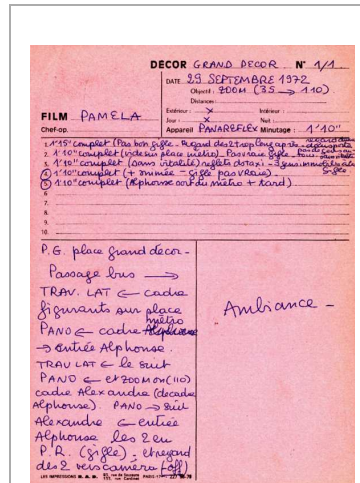 DECOR GRAND DECOR N° 1/1
DATE 29 SEPTEMBRE 1972
Objectif : ZOOM (35 → 110)
Distances :
Extérieur : X Intérieur :
FILM PAMELA
Jour : X Nuit :
Chef-op. Appareil PANAREFLEX Minutage : 1'10"
1. 1'15" complet (Pas bon gifle - Regard des 2 trop long après -
2. 1'10" complet (vide sur place métro) Pas vraie gifle -
3. 1'10" complet (sans vitalité) reflets du taxi -
4. 1'10" complet (+ minée - gifle pas vraie).
5. 1'10" complet (Alphonse sort du métro + tard)
6.
7.
8.
9.
10.
P.G. place grand decor -
Passage bus →
TRAV. LAT ← cadre
figurants sur place
métro
PANO ← cadre
→ entrée Alphonse.
TRAV LAT ← le suit
PANO ← et ZOOM on (110)
cadre Alexandre (decadre
Alphonse). PANO → suit
Alexandre ← entrée
Alphonse les 2 en
P.R. (gifle) - et regard
des 2 vers caméra (off)
Ambiance -
LES IMPRESSIONS